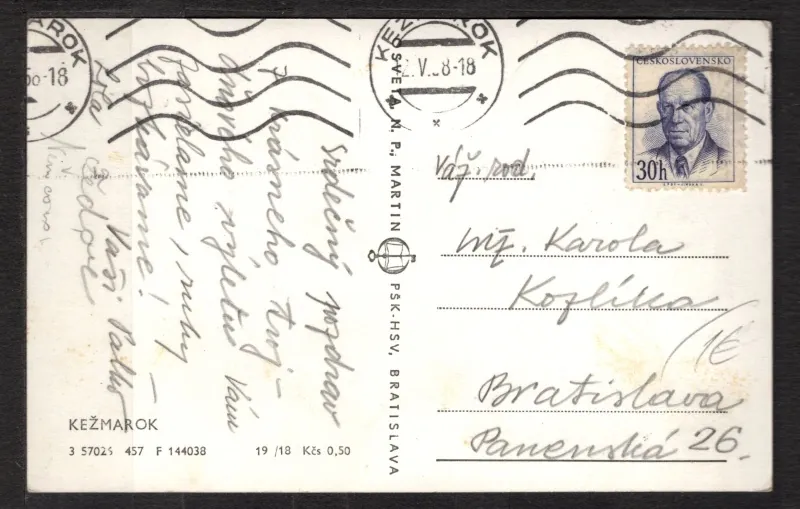 KEŽMAROK
58-18
KEŽMAROK
2.V.58-18
ČESKOSLOVENSKO
30h
Srdečný pozdrav
z krásneho troj-
dňového výletu Vám
posielame, ruky
bozkávame!
Vaši Palko
OSVETA, N. P., MARTIN
PŠK-HSV, BRATISLAVA
Váž. rod.
Karola
Kozlíka
Bratislava
Panenská 26.
1€
KEŽMAROK
3 57025 457 F 144038 19/18 Kčs 0,50